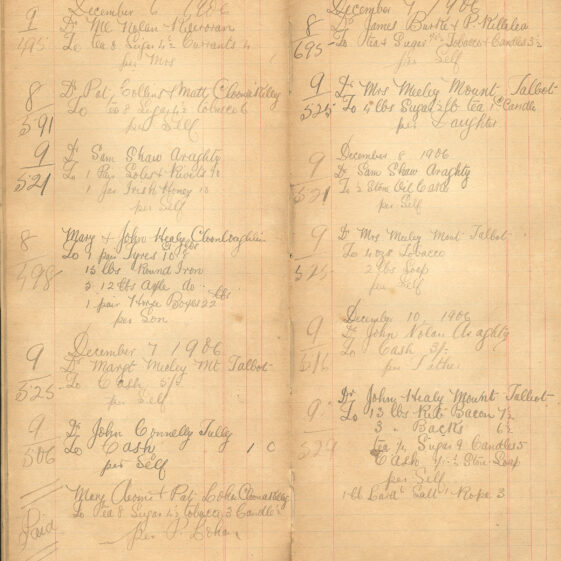 December 6 1906
9 Dr Mc Nolan
495 To Tea 8 Sugar 4½ Currants 4
per Mrs
8 Dr Pat Collins & Matt Cloonakelly
591 To Tea 8 Sugar 4½ Tobacco 6
per Self
9 Dr Sam Shaw Araghty
521 To 1 Pair Soles & Rivets
1 Jar Irish Honey
per Self
8 Mary & John Healy Cloonloughlin
498 To 1 pair Tyres
15 lbs Round Iron
3 12 lbs Axle do
1 pair Horse Boxes 22 lbs
per Son
December 7 1906
9 Dr Margt Meeley Mt Talbot
525 To Cash 5/-
per Self
9 Dr John Connelly Tully
506 To Cash 1 0
per Self
Mary & Pat Lohan Cloonakelly
Paid To Tea 8 Sugar 4½ Tobacco 3 Candle
per P. Lohan
December 7 1906
8 Dr James Burke & P Killalea
695 To Tea & Sugar Tobacco & Candles 3½
per Self
9 Dr Mrs Meeley Mount Talbot
525 To 4 lbs Sugar ½ lb Tea Candle
per Daughter
December 8 1906
Dr Sam Shaw Araghty
521 To ½ Stone Oil Cake
per Self
9 Dr Mrs Meeley Mont Talbot
525 To 4 ozs Tobacco
2 lbs Soap
per Self
December 10 1906
9 Dr John Nolan Araghty
516 To Cash 3/-
per
9 Dr John Healy Mount Talbot
529 To 13 lbs Rib Bacon 7½
3 " Backs 6½
Tea Sugar 9 Candles 5
Cash Stone Soap
per Self
1 lb Lard Salt 1 Rope 3